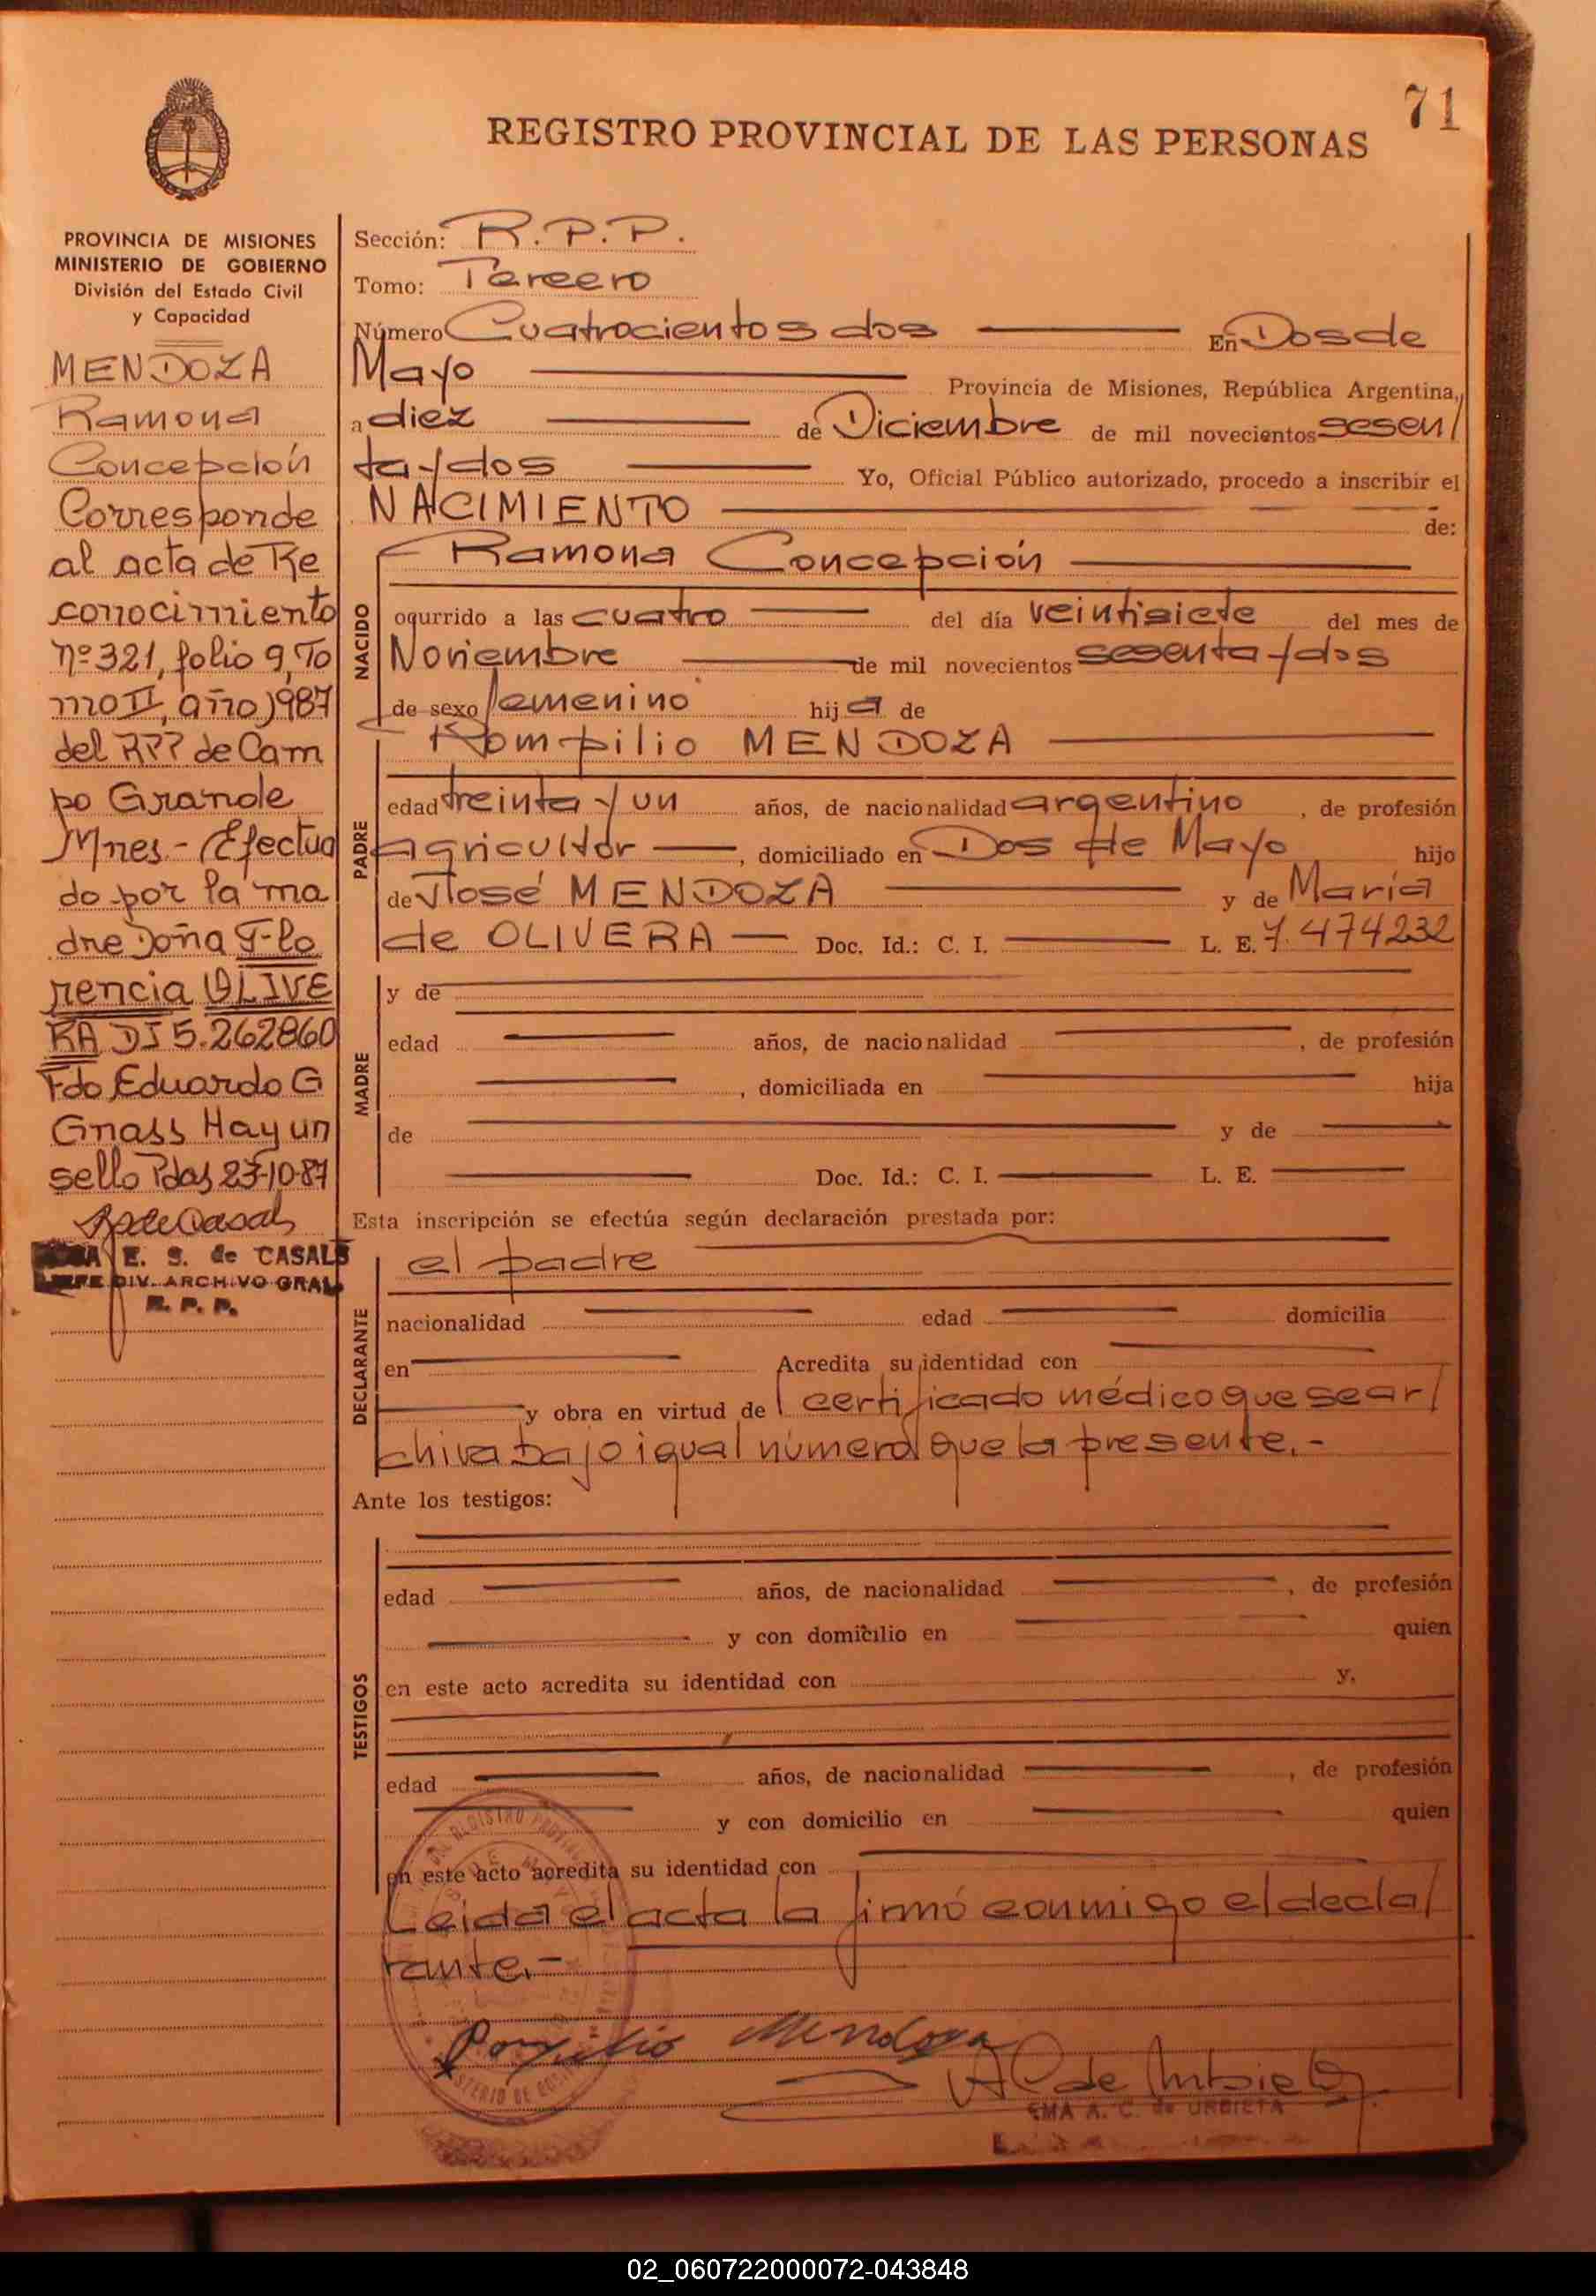 71
REGISTRO PROVINCIAL DE LAS PERSONAS
PROVINCIA DE MISIONES
MINISTERIO DE GOBIERNO
División del Estado Civil
y Capacidad
MENDOZA
Ramona
Concepción
Corresponde
al acta de Re
conocimiento
nº 321, folio 9, To
mo II, año 1987
del RPP de Cam
po Grande
Mnes.- Efectua
do por la ma
dre Doña Flo
rencia OLIVE
RA DI 5.262860
Fdo Eduardo G
Gnass Hay un
sello Pdas 23-10-87
E. S. de CASALS
JEFE DIV. ARCHIVO GRAL.
R. P. P.
Sección: R.P.P.
Tomo: Tercero
Número Cuatrocientos dos En Dos de
Mayo Provincia de Misiones, República Argentina,
a diez de Diciembre de mil novecientos sesen/
ta y dos Yo, Oficial Público autorizado, procedo a inscribir el
NACIMIENTO de:
NACIDO
Ramona Concepción
ocurrido a las cuatro del día veintisiete del mes de
Noviembre de mil novecientos sesenta y dos
de sexo femenino hija de
PADRE
Pompilio MENDOZA
edad treinta y un años, de nacionalidad argentino, de profesión
agricultor, domiciliado en Dos de Mayo hijo
de José MENDOZA y de María
de OLIVERA Doc. Id.: C. I. L. E. 7.474232
MADRE
y de
edad años, de nacionalidad , de profesión
, domiciliada en hija
de y de
Doc. Id.: C. I. L. E.
Esta inscripción se efectúa según declaración prestada por:
DECLARANTE
el padre
nacionalidad edad domicilia
en Acredita su identidad con
y obra en virtud de certificado médico que se ar/
chiva bajo igual número que la presente.-
Ante los testigos:
TESTIGOS
edad años, de nacionalidad , de profesión
y con domicilio en quien
en este acto acredita su identidad con y.
edad años, de nacionalidad , de profesión
y con domicilio en quien
en este acto acredita su identidad con
Leida el acta la firmó conmigo el decla/
rante.-
Pompilio Mendoza
A C de Urbieta
EMA A. C. de URBIETA
02_060722000072-043848